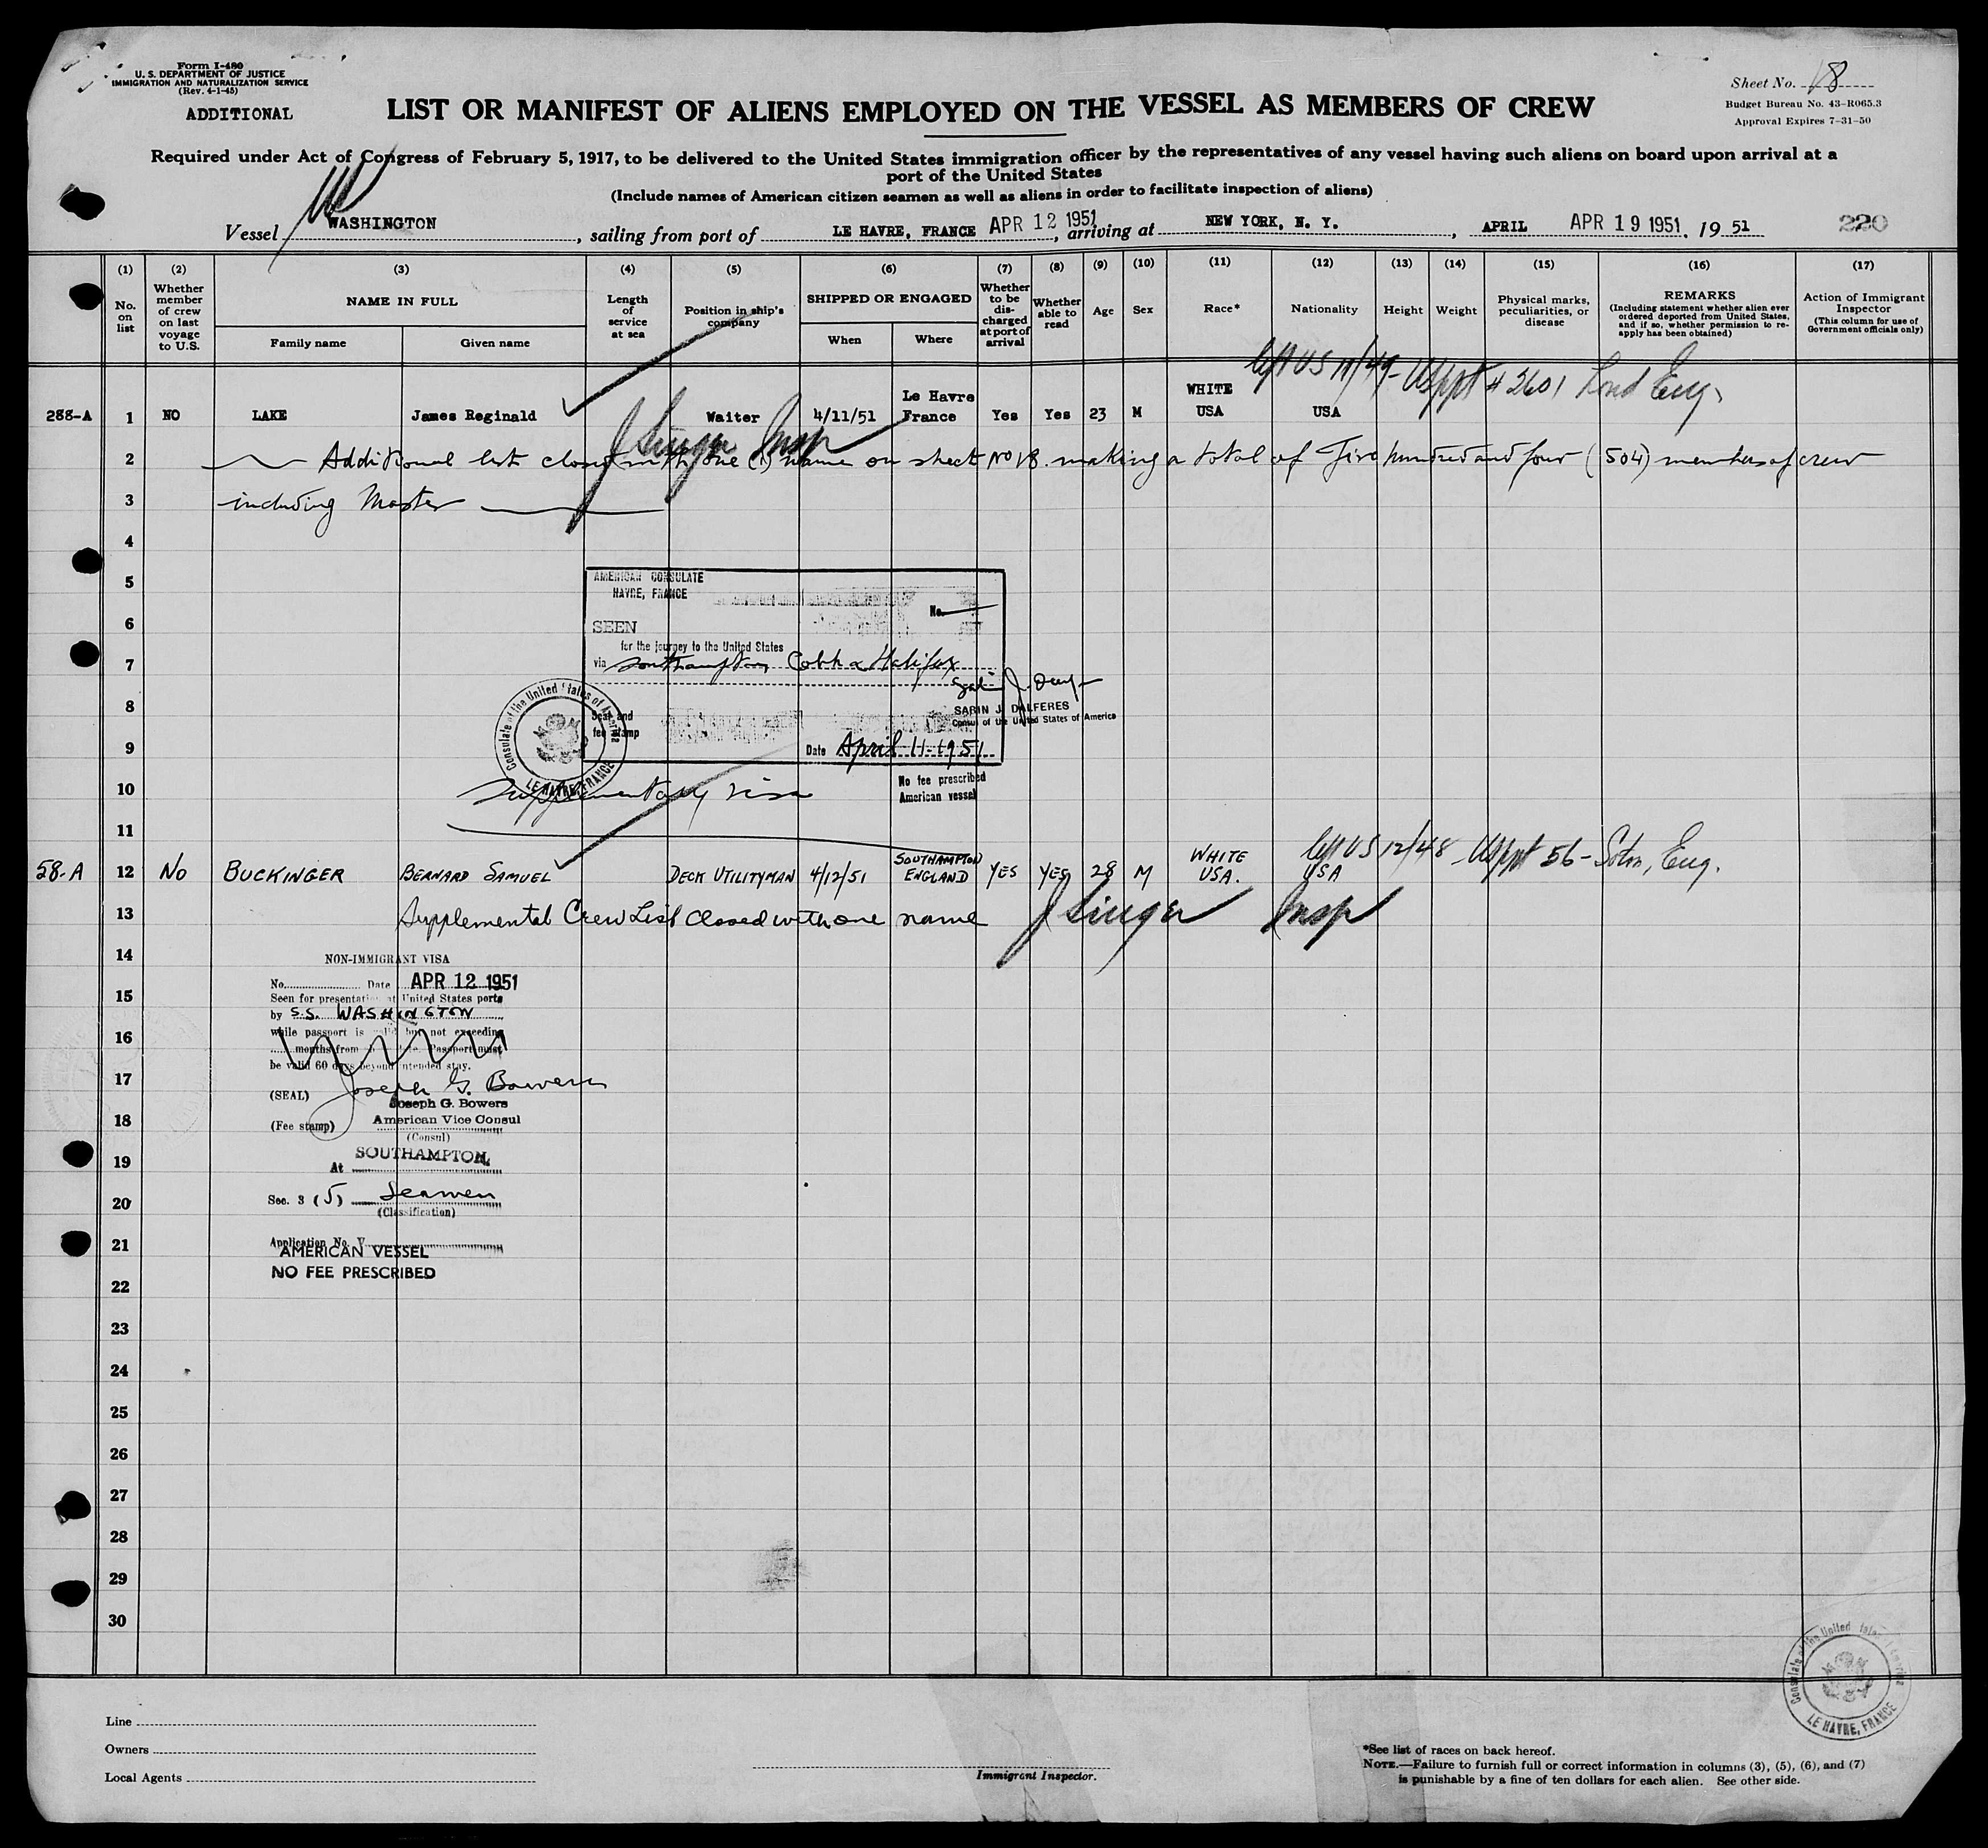 Form I-480
U. S. DEPARTMENT OF JUSTICE
IMMIGRATION AND NATURALIZATION SERVICE
(Rev. 4-1-45)
ADDITIONAL
Sheet No. 18
Budget Bureau No. 43-R065.3
Approval Expires 7-31-50
LIST OR MANIFEST OF ALIENS EMPLOYED ON THE VESSEL AS MEMBERS OF CREW
Required under Act of Congress of February 5, 1917, to be delivered to the United States immigration officer by the representatives of any vessel having such aliens on board upon arrival at a
port of the United States
(Include names of American citizen seamen as well as aliens in order to facilitate inspection of aliens)
Vessel WASHINGTON, sailing from port of LE HAVRE, FRANCE APR 12 1951, arriving at NEW YORK, N. Y., APRIL APR 19 1951, 19 51
220
(1) No. on list
(2) Whether member of crew on last voyage to U.S.
(3) NAME IN FULL
Family name
Given name
(4) Length of service at sea
(5) Position in ship's company
(6) SHIPPED OR ENGAGED
When
Where
(7) Whether to be discharged at port of arrival
(8) Whether able to read
(9) Age
(10) Sex
(11) Race*
(12) Nationality
(13) Height
(14) Weight
(15) Physical marks, peculiarities, or disease
(16) REMARKS
(Including statement whether alien ever ordered deported from United States, and if so, whether permission to reapply has been obtained)
(17) Action of Immigrant Inspector
(This column for use of Government officials only)
left US 11/49 - USppt # 2601 Lond Eng.
288-A 1 NO LAKE James Reginald Waiter 4/11/51 Le Havre France Yes Yes 23 M WHITE USA USA
J Singer Insp
2 Additional list closed with one (1) name on sheet No 18. making a total of Five hundred and four (504) members of crew
3 including Master
4
5
AMERICAN CONSULATE
HAVRE, FRANCE
No.
6
SEEN
for the journey to the United States
7
via Southampton Cobh & Halifax
8
SABIN J. DALFERES
Consul of the United States of America
Seal and
fee stamp
9
Date April 11-1951
Consulate of the United States of America
LE HAVRE, FRANCE
No fee prescribed
American vessel
10 Supplementary visa
11
left US 12/48 - USppt 56 - Soton, Eng.
58-A 12 No BUCKINGER BERNARD SAMUEL DECK UTILITYMAN 4/12/51 SOUTHAMPTON ENGLAND YES YES 28 M WHITE USA. USA
13 Supplemental Crew List closed with one name J Singer Insp
14
NON-IMMIGRANT VISA
No. Date APR 12 1951
15
Seen for presentation at United States ports
by S.S. WASHINGTON
16
while passport is valid but not exceeding
months from date. Passport must
be valid 60 days beyond intended stay.
17
(SEAL) Joseph G. Bowers
Joseph G. Bowers
18
(Fee stamp) American Vice Consul
(Consul)
19
At SOUTHAMPTON,
20
Sec. 3 (5) Seamen
(Classification)
21
Application No. V
AMERICAN VESSEL
NO FEE PRESCRIBED
22
23
24
25
26
27
28
29
30
Consulate of the United States of America
LE HAVRE, FRANCE
Line
Owners
Local Agents
Immigrant Inspector.
*See list of races on back hereof.
NOTE.—Failure to furnish full or correct information in columns (3), (5), (6), and (7)
is punishable by a fine of ten dollars for each alien. See other side.